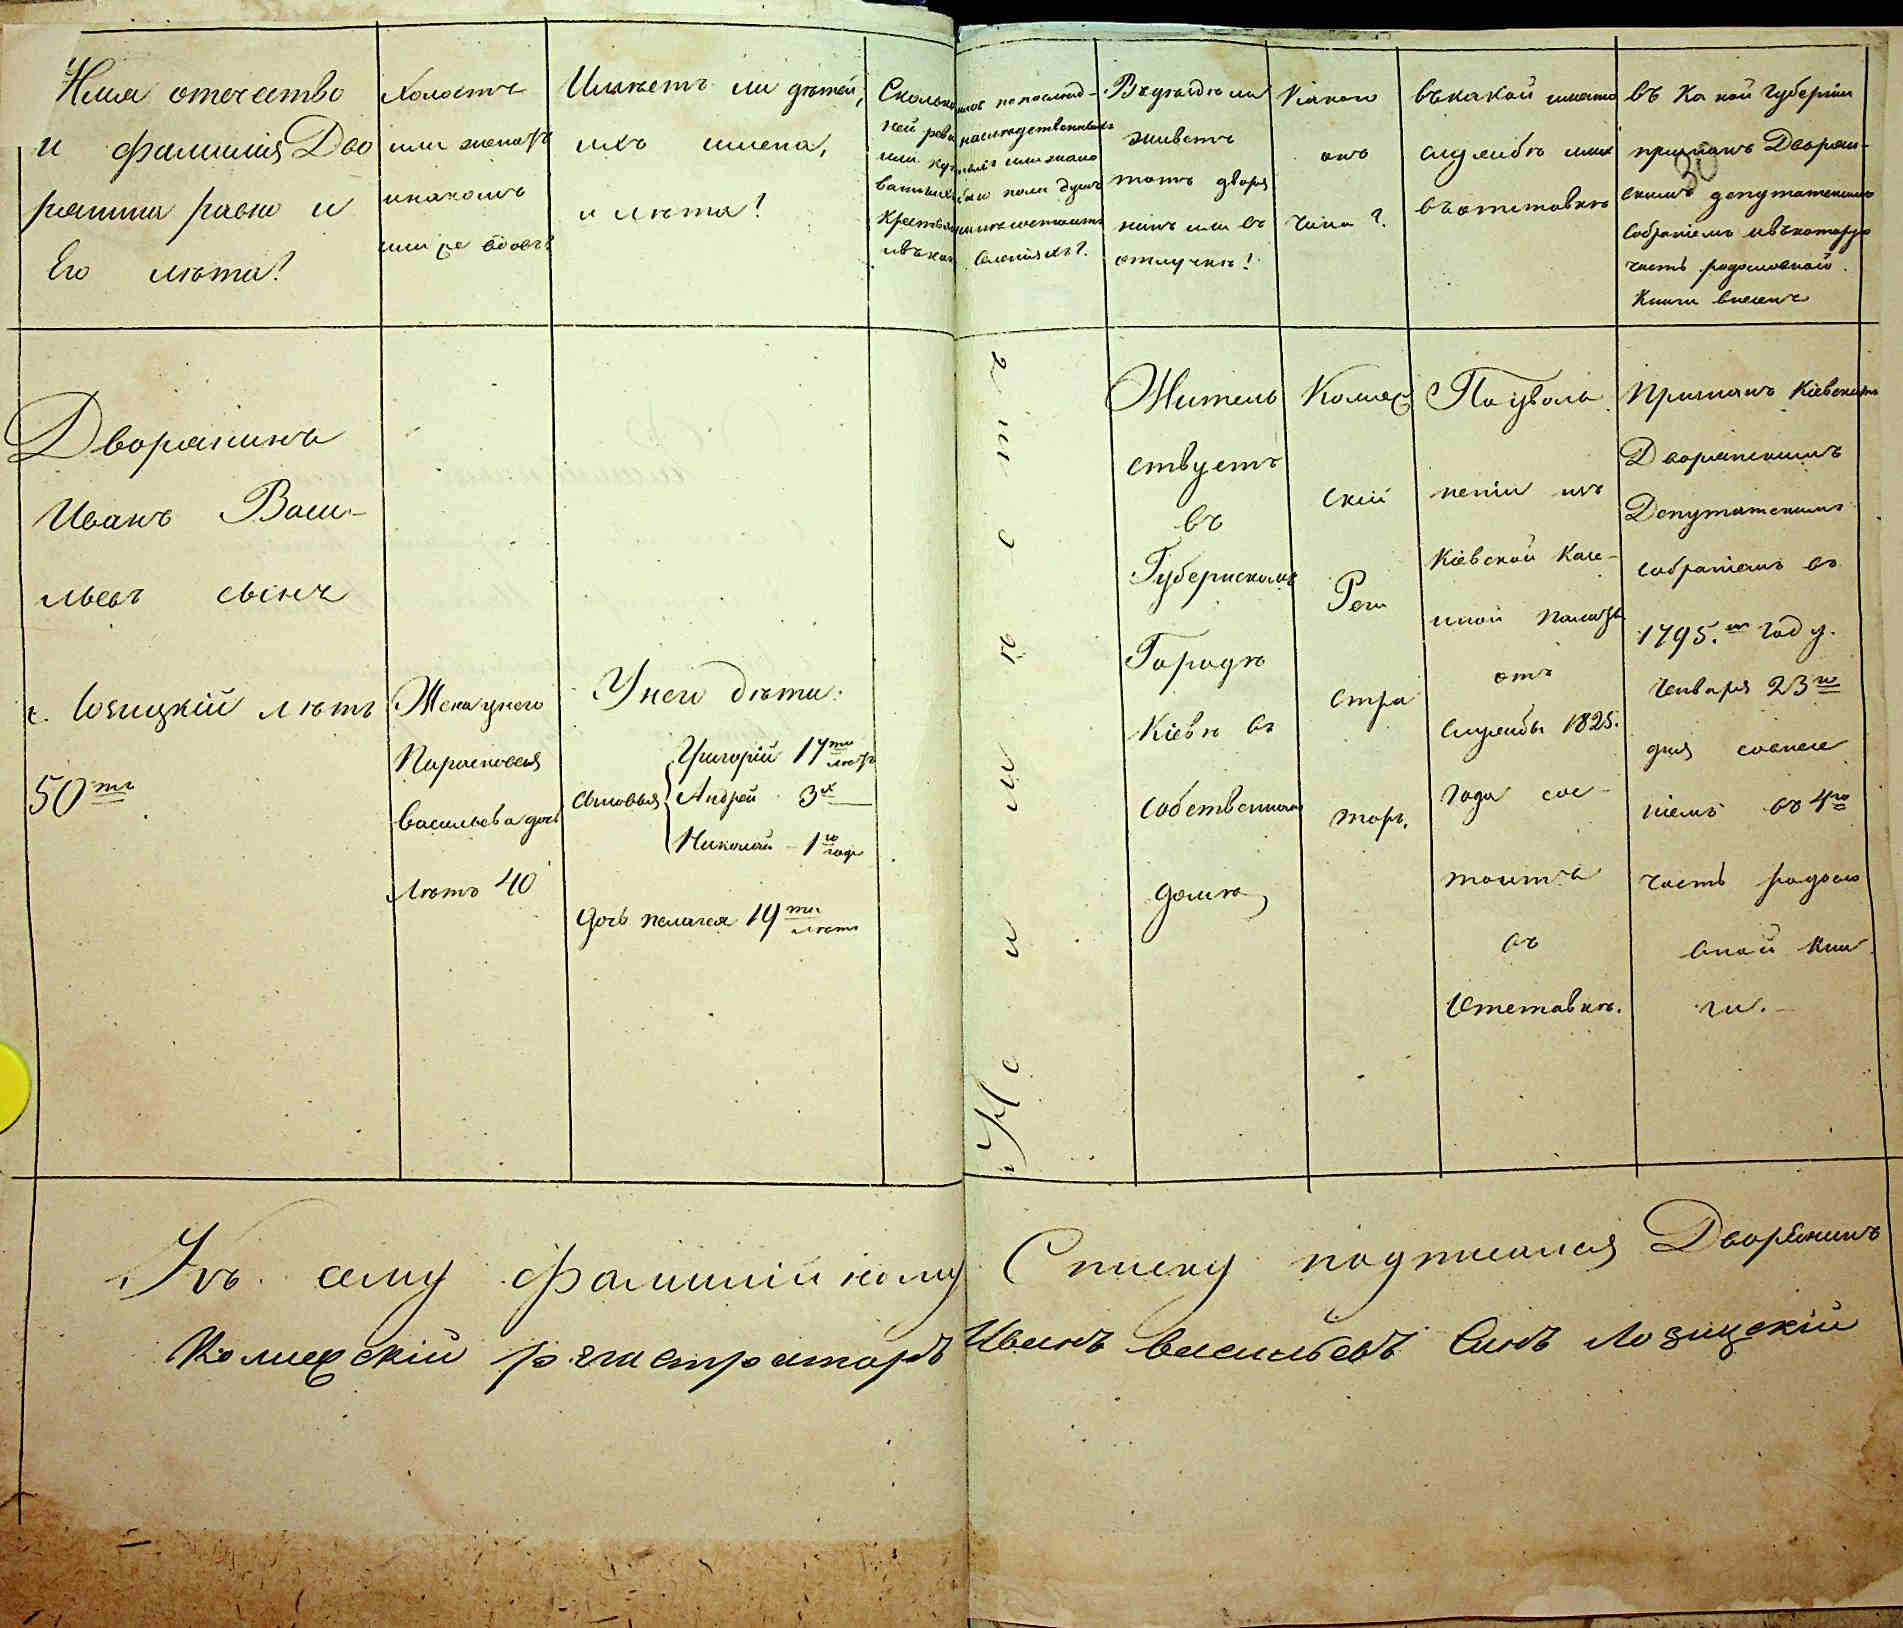 Имя отечество
и фамилия Дво
рянина равно и
Его лета?
Холостъ
или женатъ
на комъ
или же вдовъ?
Имѣетъ ли дѣтей,
ихъ имена,
и лѣта?
Сколько
ней реви
или куп
крестьян
Селенияхъ?
живетъ
тотъ дворя
нинъ или въ
отлучке?
Какого
онъ
Чина?
въ какой имянно
службѣ или
въ отставкѣ
въ Какой Губернии
признанъ Дворян-
скимъ депутатскимъ
Собраниемъ и въ которую
часть родословной
Книги внесенъ
30
Дворянинъ
Иванъ Васи-
льевъ сынъ
Лозицкій лѣтъ
50тъ
Жена у него
Парасковея
Васильева дочь
Лѣтъ 40
У него дѣти:
Сыновья
Григорій 17ти лѣтъ
Андрей 3х
Николай – 1го года
Дочь Пелагея 19ти лѣтъ
Не имѣетъ
Житель
ствуетъ
въ
Губернскомъ
Городѣ
Кіевѣ въ
собственномъ
домѣ
Коллеж
скій
Реги
стра
торъ.
По уволь
неніи изъ
Кіевской Казе-
нной Палаты
отъ
Службы 1825.
года сос-
тоитъ
въ
Отставкѣ.
Признанъ Кіевскимъ
Дворянскимъ
Депутатскимъ
собраніемъ въ
1795.мъ году.
Генваря 23го
дня со внесе
ніемъ въ 4ю
часть родосло
вной Кни
ги.–
Къ сему Фамилійному Списку подписался Дворенинъ
Колежскій регистраторъ Иванъ васильевъ Синъ Лозицскій